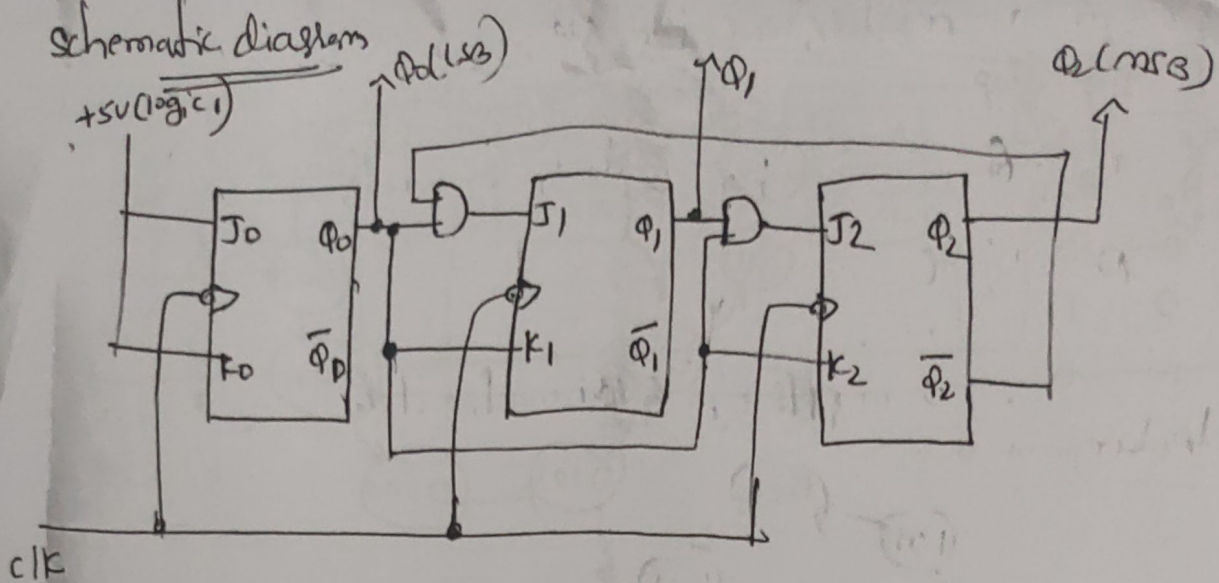 schematic diagram
+5V (logic 1)
Q0 (LSB)
Q1
Q2 (MSB)
J0 Q0
K0 Q̅0
J1 Q1
K1 Q̅1
J2 Q2
K2 Q̅2
clk